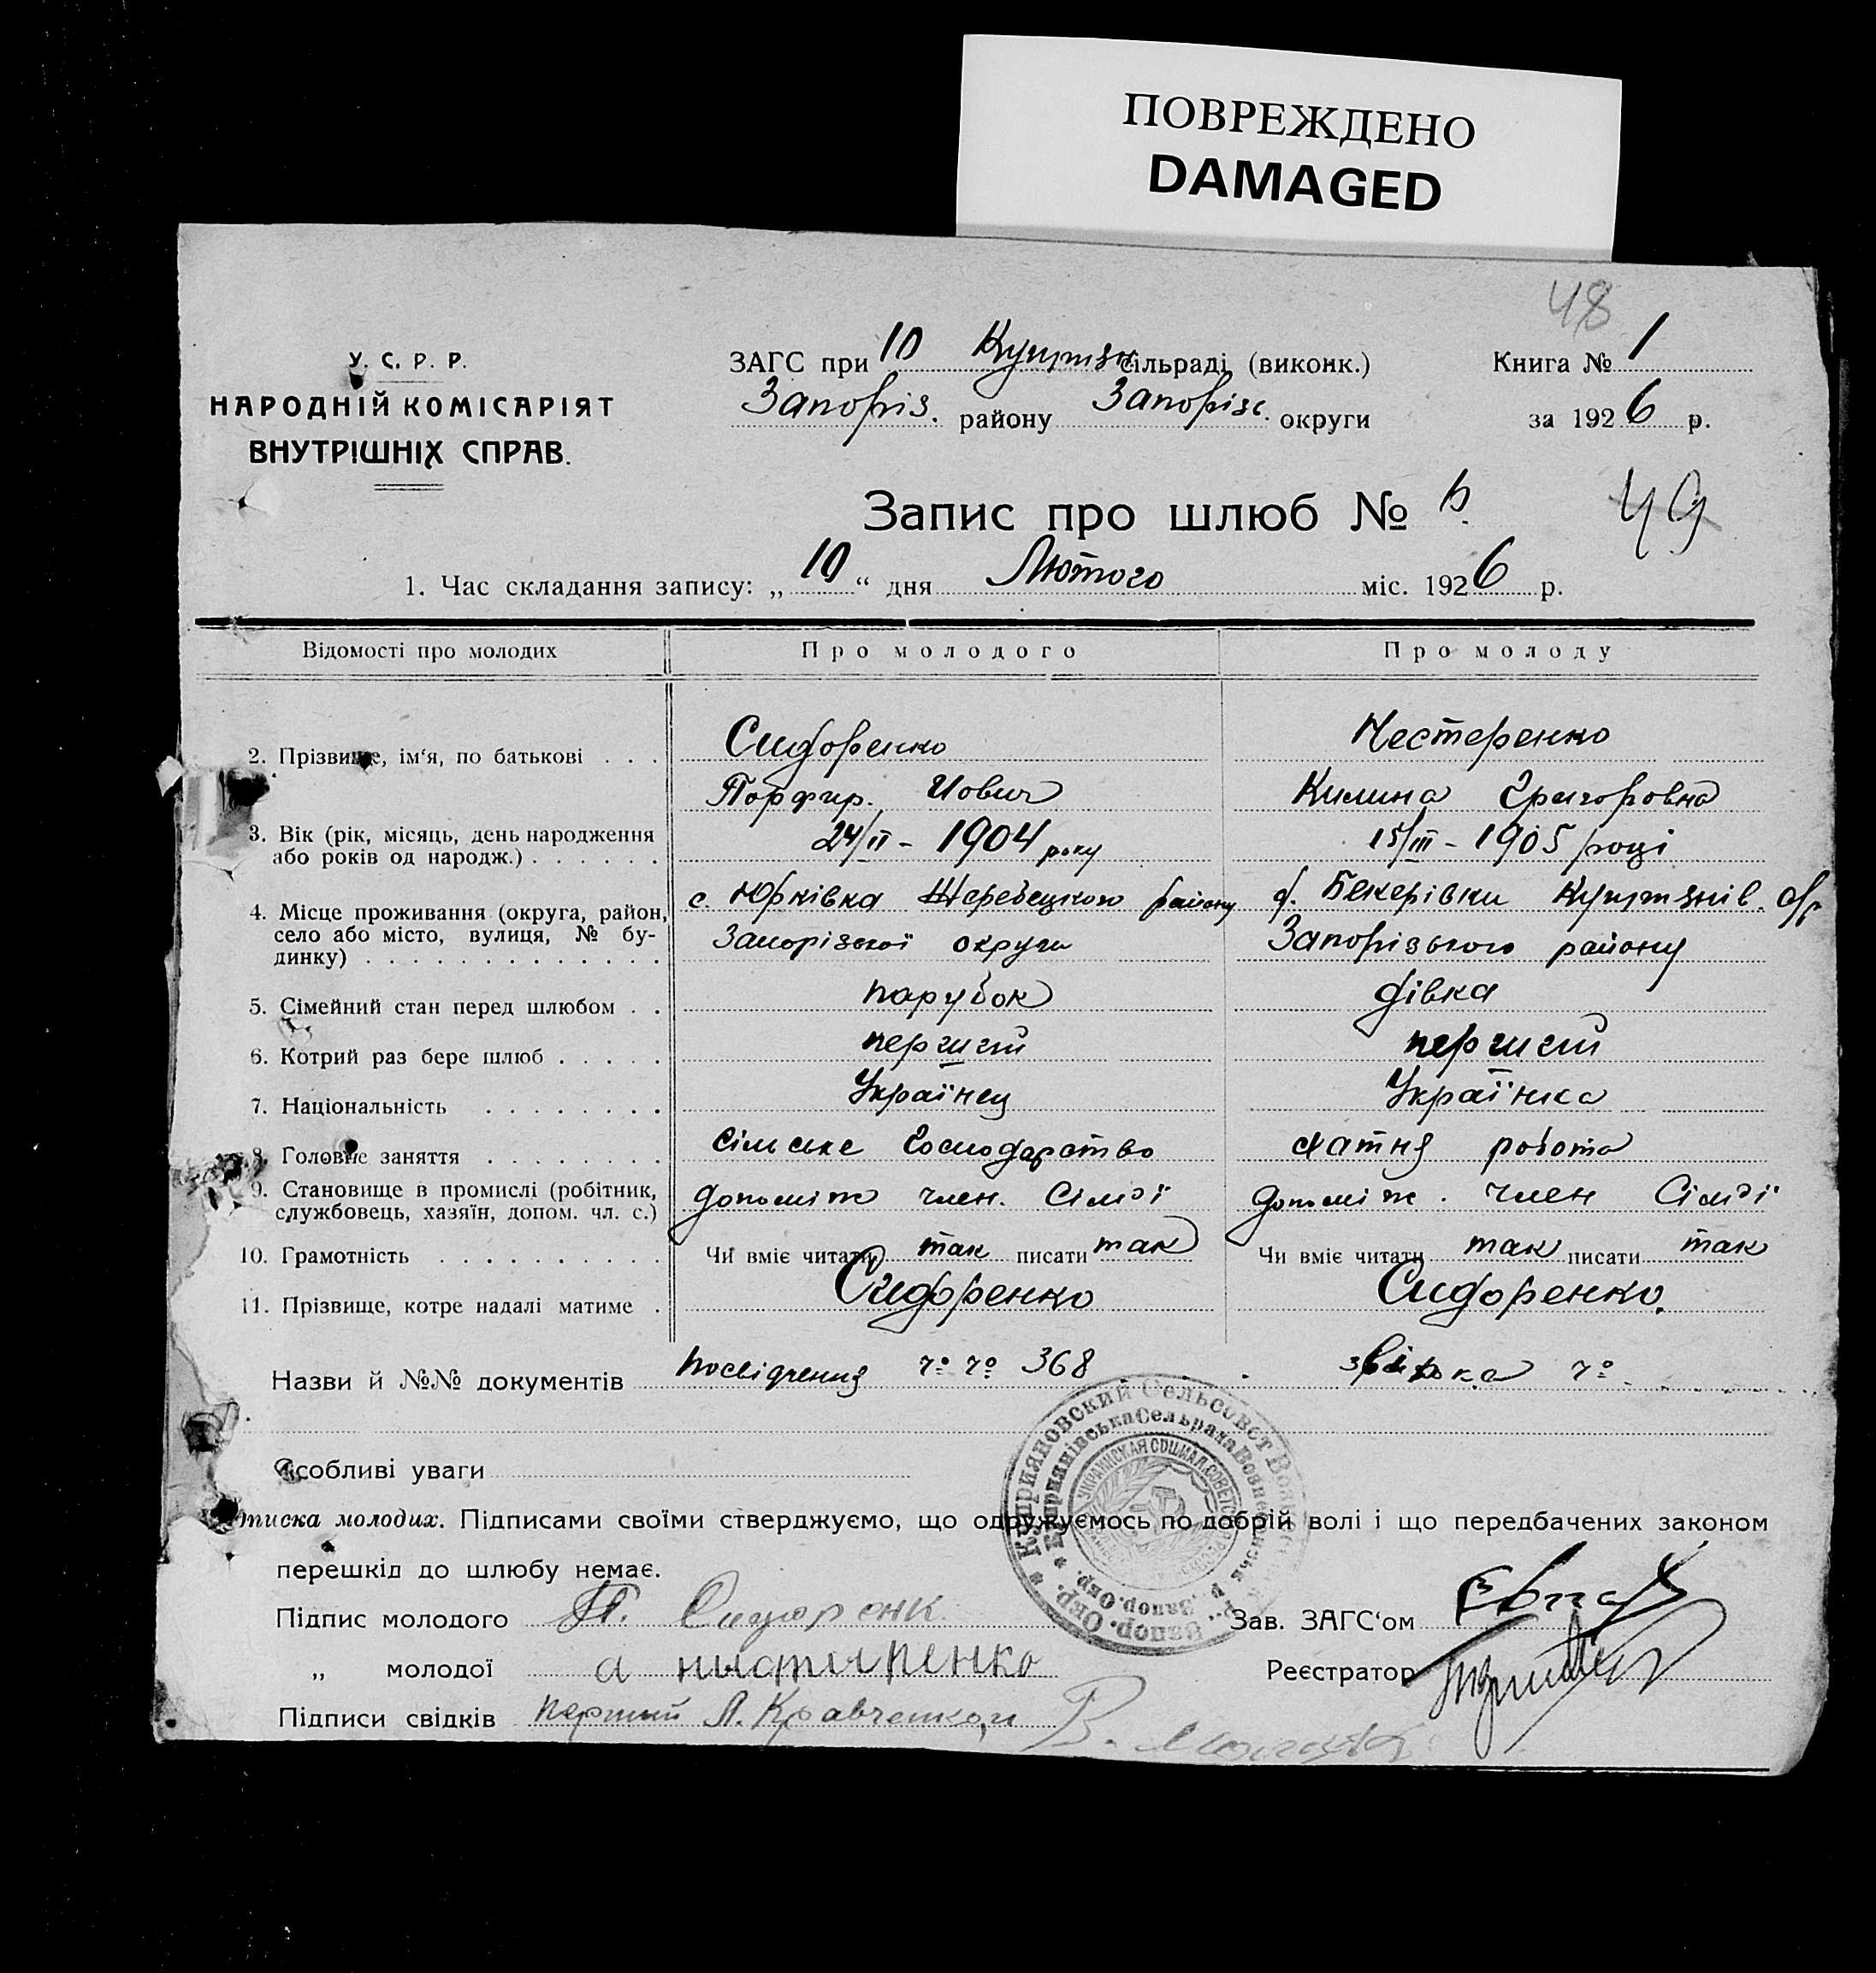 ПОВРЕЖДЕНО
DAMAGED
48
У. С. Р. Р.
НАРОДНІЙ КОМІСАРІЯТ
ВНУТРІШНІХ СПРАВ.
ЗАГС при 10 сільраді (виконк.)
Запоріз. району Запорізс. округи
Книга № 1
за 1926 р.
Запис про шлюб №
49
1. Час складання запису: „ 10 “ дня Лютого міс. 1926 р.
Відомості про молодих Про молодого Про молоду
2. Прізвище, ім‘я, по батькові . . . Сидоренко Нестеренко
Порфир. Иович Килина Григоровна
3. Вік (рік, місяць, день народження
або років од народж.) . . . . . . 24/II - 1904 року 15/III - 1905 році
4. Місце проживання (округа, район,
село або місто, вулиця, № бу-
динку) . . . . . . . . . . . . .
с. Юрківка Жеребецького району
Запорізської округи
Бекерівки
Запорізького району
5. Сімейний стан перед шлюбом . . парубок дівка
6. Котрий раз бере шлюб . . . . . перший перший
7. Національність . . . . . . . . Українец Українка
8. Головне заняття . . . . . . . . сільське господарство хатня робота
9. Становище в промислі (робітник,
службовець, хазяїн, допом. чл. с.) допоміж член. Сімʼї допоміж. член Сімʼї
10. Грамотність . . . . . . . . . . Чи вміє читати так писати так Чи вміє читати так писати так
11. Прізвище, котре надалі матиме . Сидоренко Сидоренко.
Назви й №№ документів посвідчення 368
Особливі уваги
Підписка молодих. Підписами своїми стверджуємо, що одружуємось по добрій волі і що передбачених законом
перешкід до шлюбу немає.
Куприяновский Сельсовет
Куприянівська Сельрада Вознесенськ р. Запор. Окр.
УКРАИНСКАЯ СОЦИАЛ. СОВЕТСК
Запор. Окр.
Підпис молодого П. Сидоренк
Зав. ЗАГС‘ом
„ молодої
Реєстратор
Підписи свідків перший Л. Кравченко